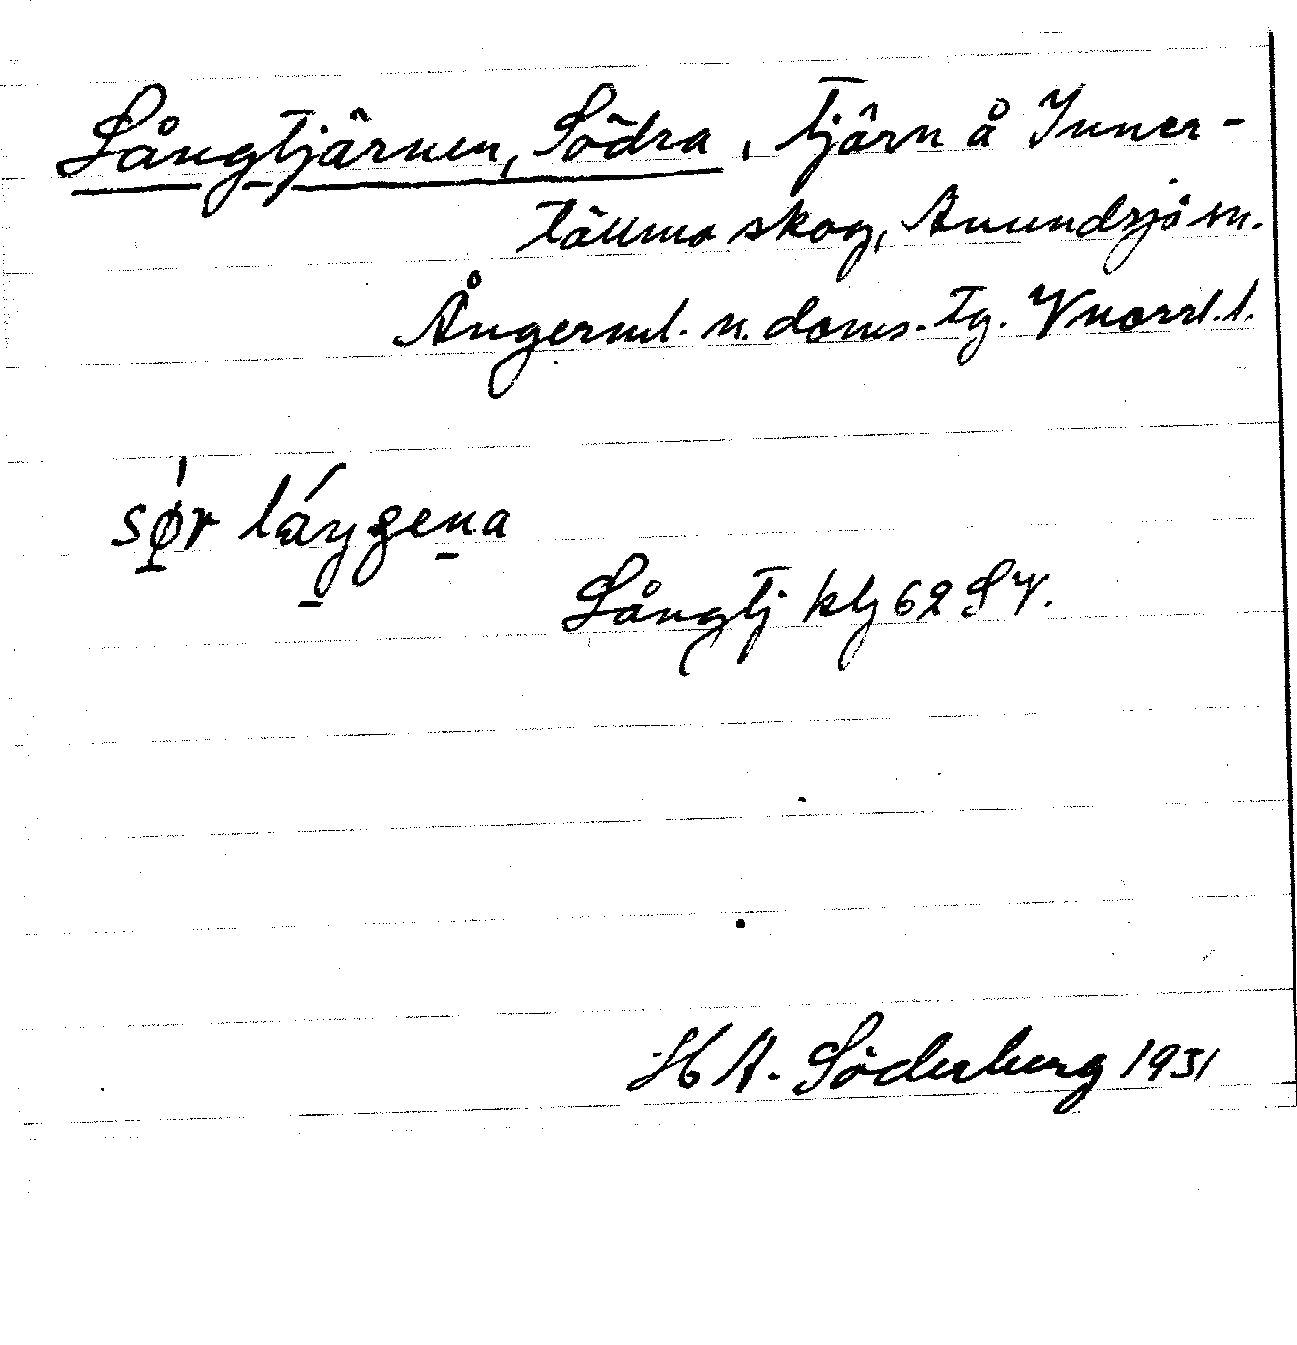 Långtjärnen, Södra, tjärn å Inner-
tällmo skog, Anundsjö sn.
Ångerml. n. doms. tg. Vnorrl. l.
sø̱r
Långtj kbl 62 SV.
H A. Söderberg 1931